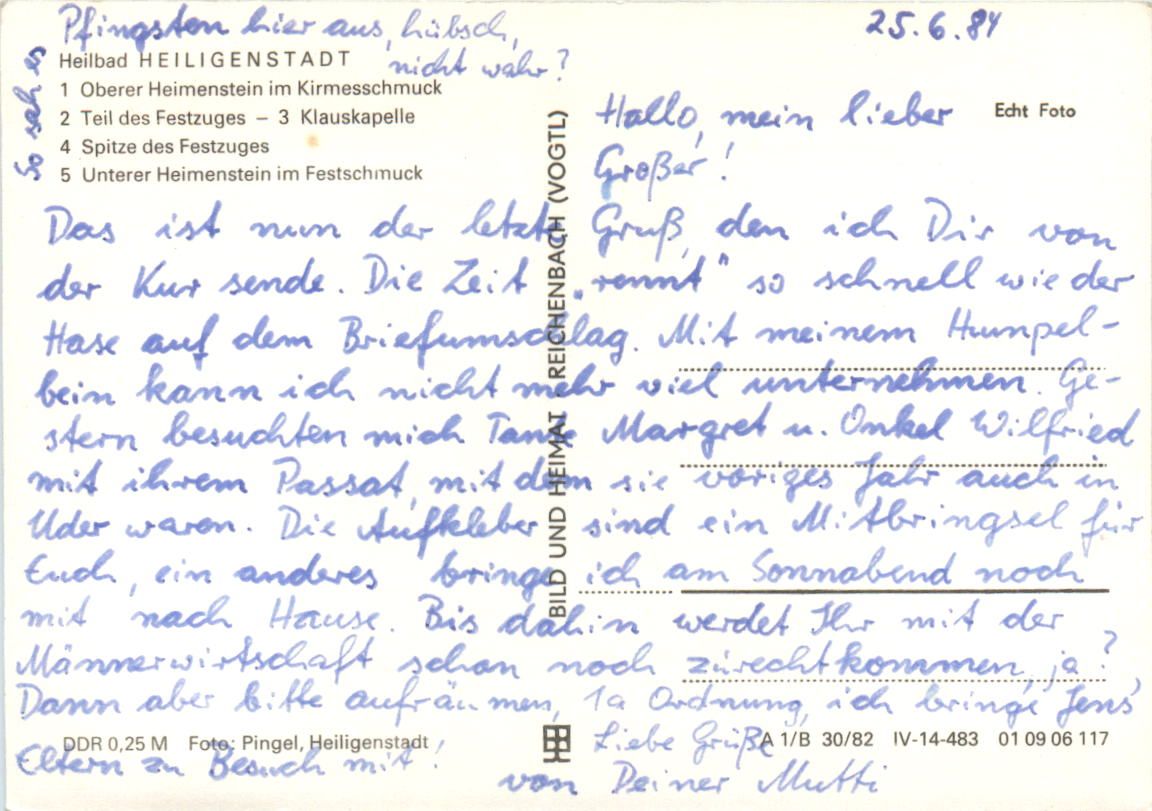 So sah es
Pfingsten hier aus, hübsch,
nicht wahr?
25.6.84
Heilbad HEILIGENSTADT
1 Oberer Heimenstein im Kirmesschmuck
2 Teil des Festzuges – 3 Klauskapelle
4 Spitze des Festzuges
5 Unterer Heimenstein im Festschmuck
Echt Foto
Hallo, mein lieber
Großer!
Das ist nun der letzte Gruß, den ich Dir von
der Kur sende. Die Zeit „rennt" so schnell wie der
Hase auf dem Briefumschlag. Mit meinem Humpel-
bein kann ich nicht mehr viel unternehmen. Ge-
stern besuchten mich Tante Margret u. Onkel Wilfried
mit ihrem Passat, mit dem sie voriges Jahr auch in
Uder waren. Die Aufkleber sind ein Mitbringsel für
Euch, ein anderes bringe ich am Sonnabend noch
mit nach Hause. Bis dahin werdet Ihr mit der
Männerwirtschaft schon noch zurechtkommen, ja?
Dann aber bitte aufräumen, 1a Ordnung, ich bringe Jens'
Eltern zu Besuch mit!
Liebe Grüße
von Deiner Mutti
BILD UND HEIMAT REICHENBACH (VOGTL)
DDR 0,25 M Foto: Pingel, Heiligenstadt
A 1/B 30/82 IV-14-483 01 09 06 117